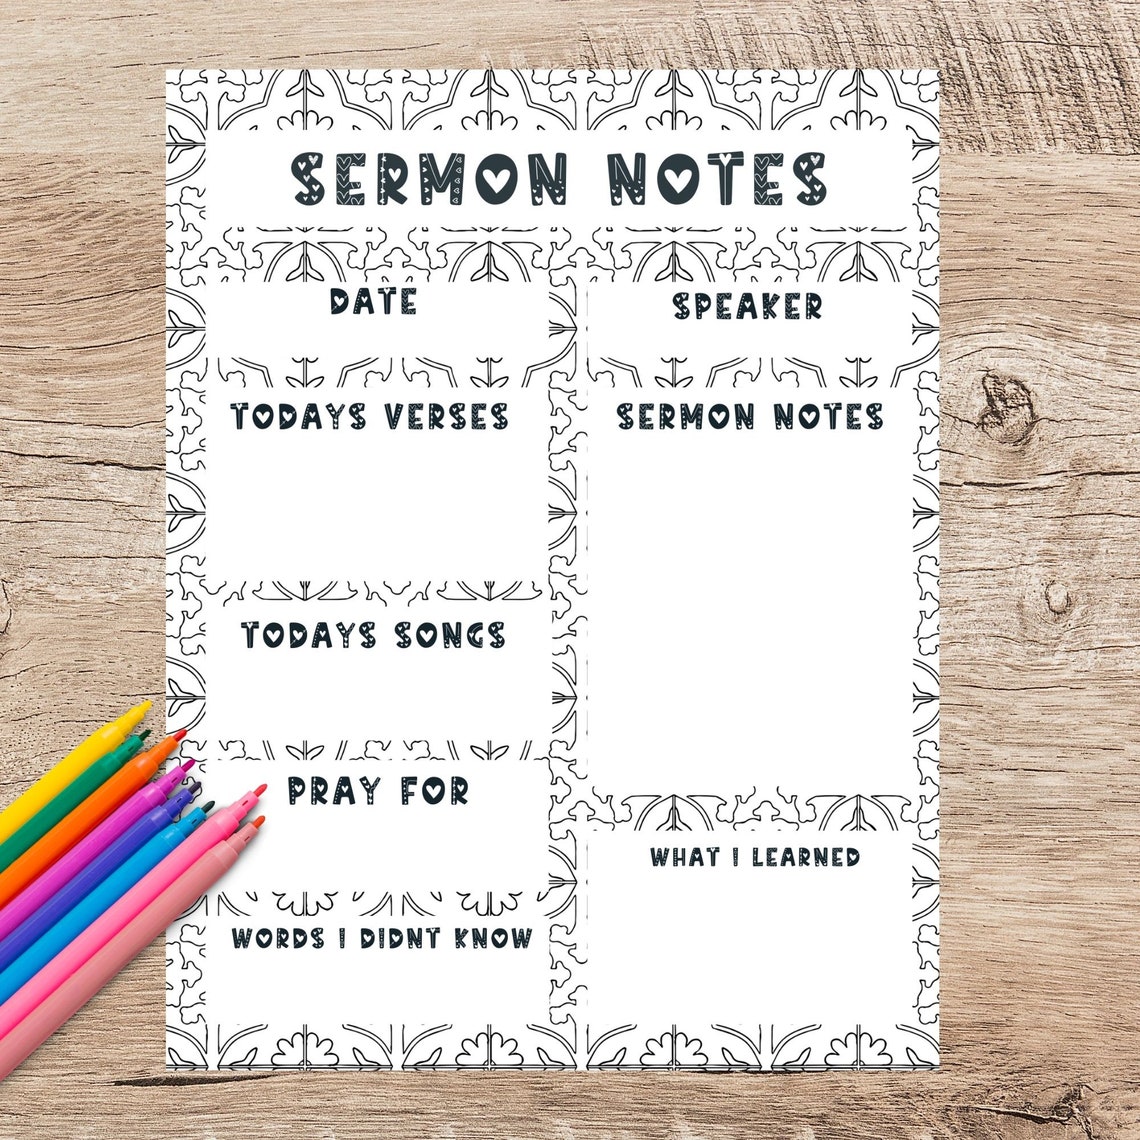 SERMON NOTES
DATE
SPEAKER
TODAYS VERSES
SERMON NOTES
TODAYS SONGS
PRAY FOR
WHAT I LEARNED
WORDS I DIDNT KNOW